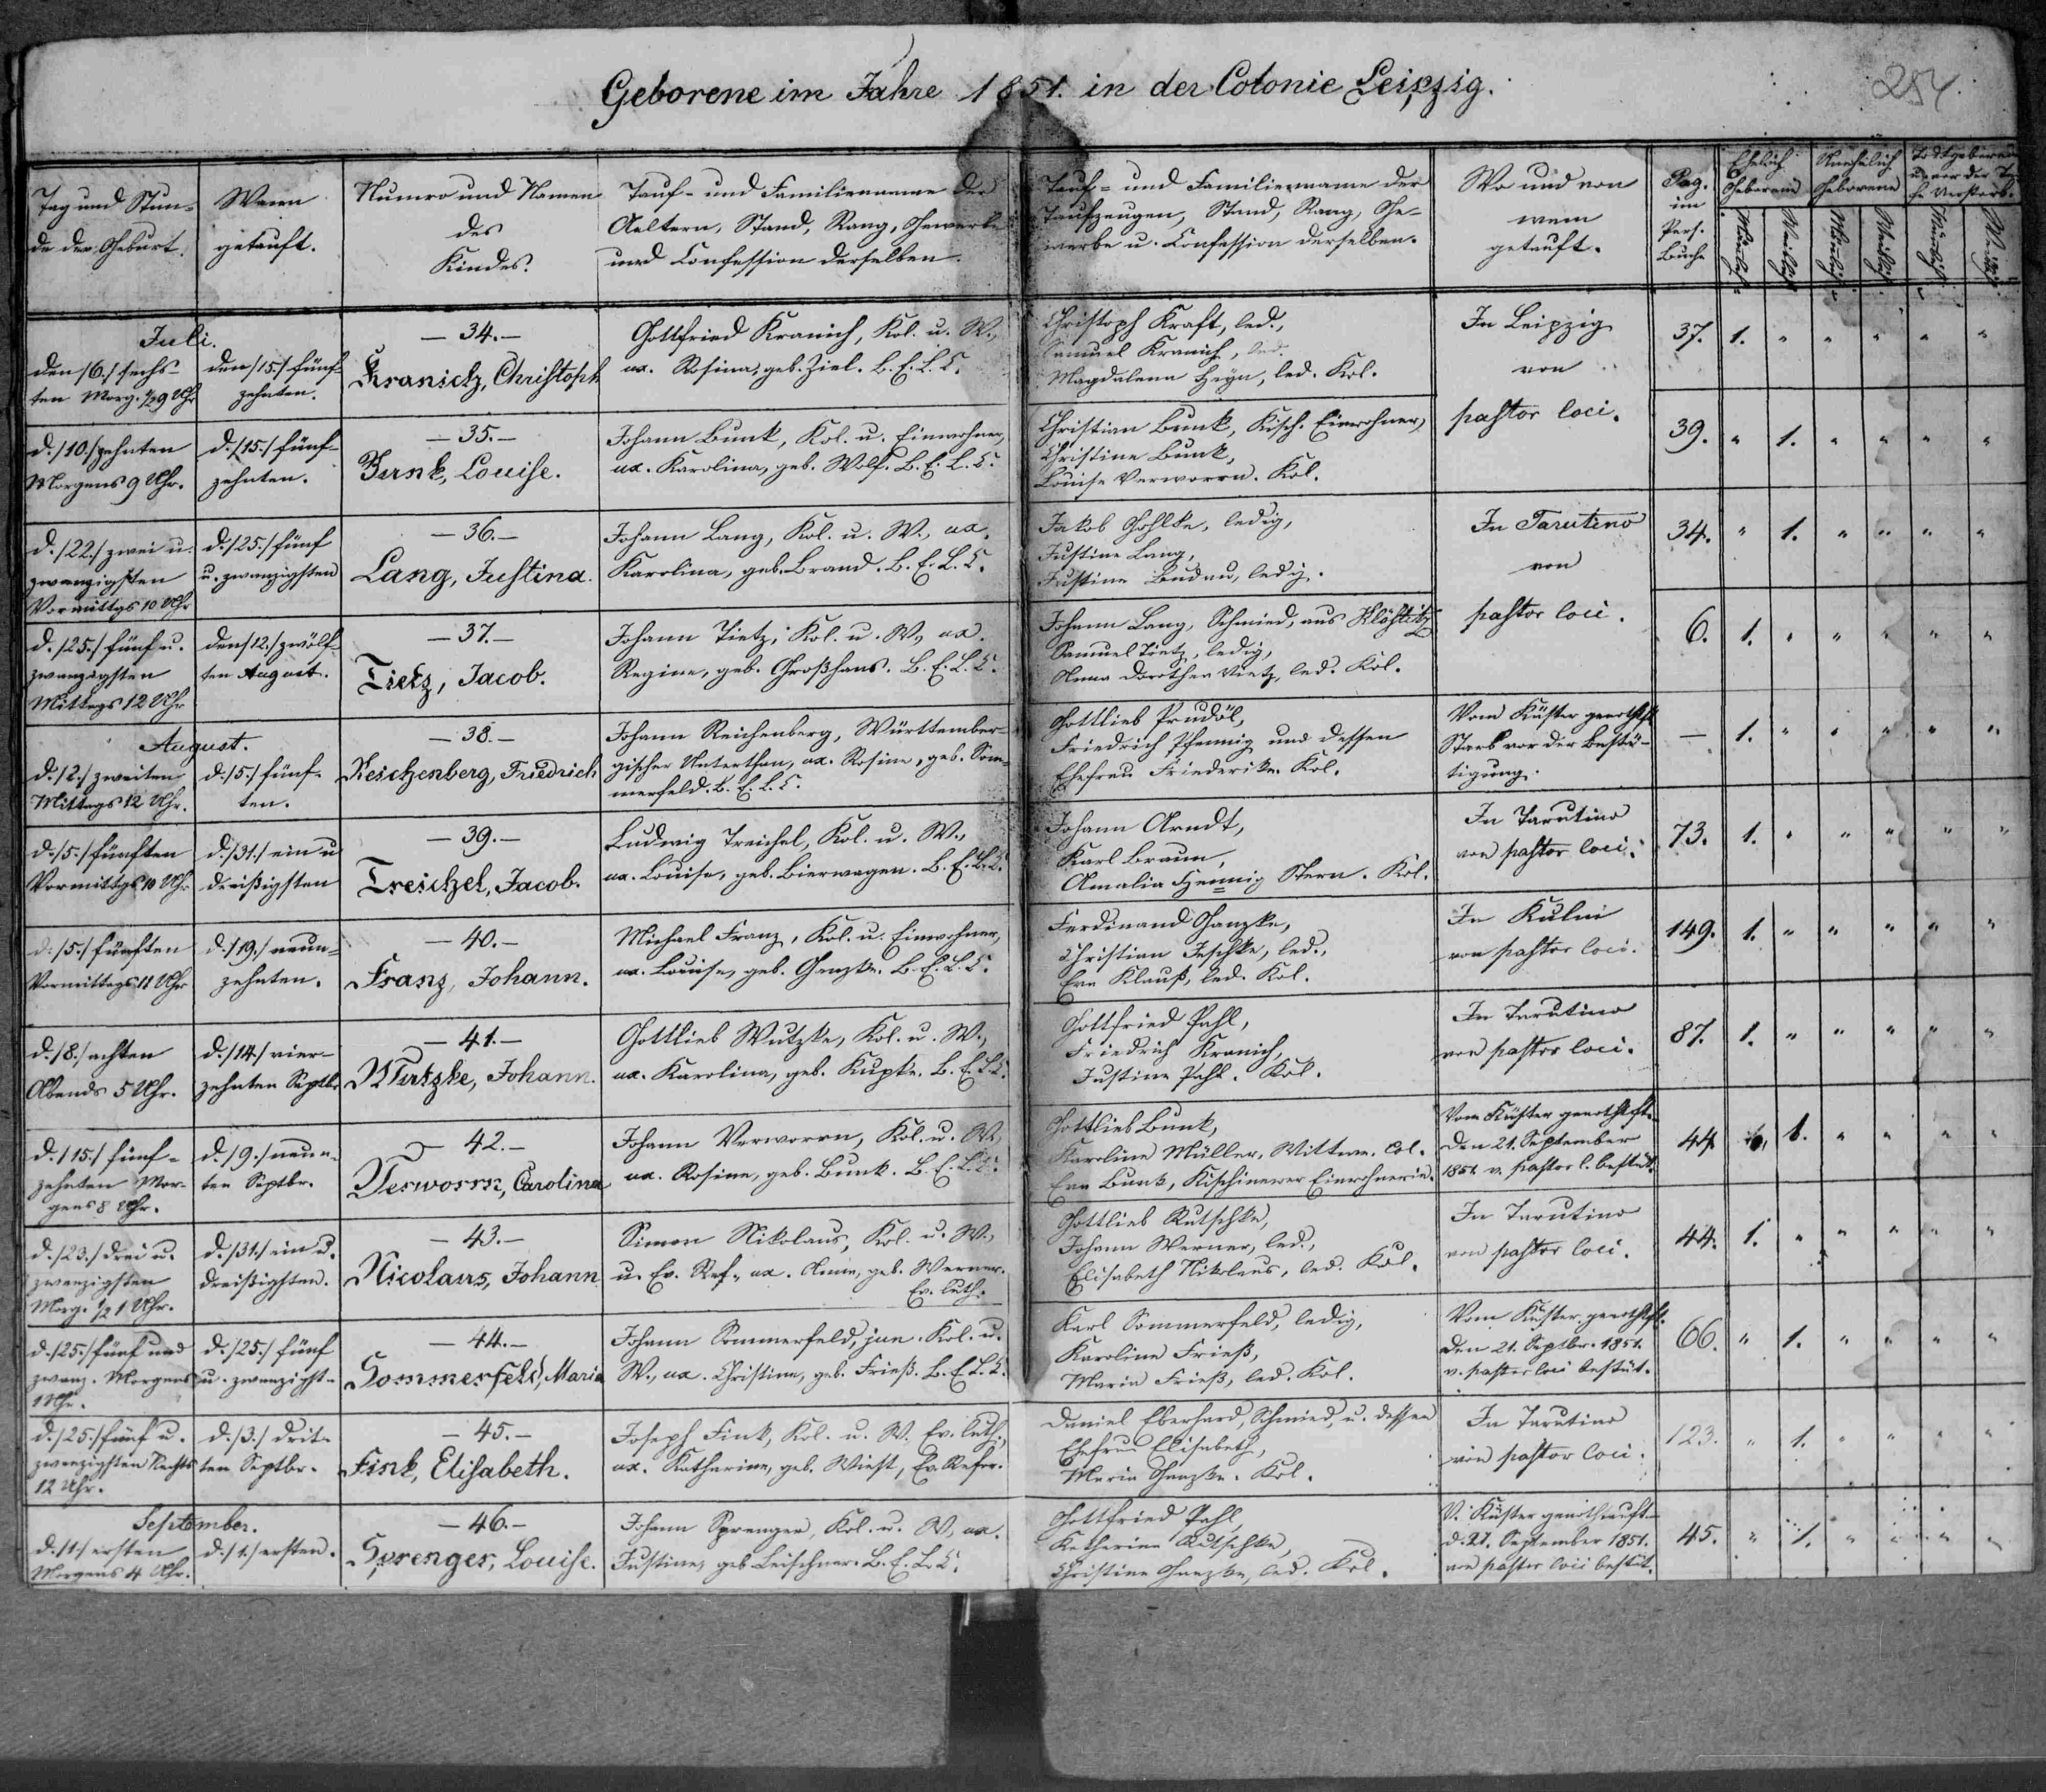 Geborene im Jahre 1851. in der Colonie Leipzig.
254
Tag und Stun-
de der Geburt.
Wann
getauft.
Numro und Namen
des
Kindes.
Tauf- und Familienname der
Aeltern, Stand, Rang, Gewerbe
und Confession derselben.
Tauf- und Familienname der
Taufzeugen, Stand, Rang, Ge-
werbe u. Confession derselben.
Wo und von
wem
getauft.
Pag.
im
Pers.
Buche
Ehelich
Geborene
Unehelich
Geborene
Todtgeborene
u. vor der Tau-
fe Verstorb.
Männlich
Weiblich
Männlich
Weiblich
Männlich
Weiblich
Juli.
den /6./ sechs-
ten Morg. ½9 Uhr
den /15./ fünf-
zehnten.
— 34. —
Kranich, Christoph
Gottfried Kranich, Kol. u. W.,
ux. Rosina, geb. Ziel. B. E. L. C.
Christoph Kraft, led.,
Samuel Kranich, led.
Magdalena Heyn, led. Kol.
In Leipzig
von
pastor loci.
37. 1. " " " " "
d. /10./ zehnten
Morgens 9 Uhr.
d. /15./ fünf-
zehnten.
— 35. —
Bunk, Louise.
Johann Bunk, Kol. u. Einwohner,
ux. Karolina, geb. Wolf. B. E. L. C.
Christian Bunk, Kisch. Einwohner,
Christine Bunk,
Louise Verworrn. Kol.
39. " 1. " " " "
d. /22./ zwei u.
zwanzigsten
Vormittgs 10 Uhr
d. /25./ fünf
u. zwanzigsten
— 36. —
Lang, Justina.
Johann Lang, Kol. u. W., ux.
Karolina, geb. Brand. B. E. L. C.
Jakob Gohlke, ledig,
Justine Lang,
Justine Budau, ledig.
In Tarutino
von
pastor loci.
34. " 1. " " " "
d. /25./ fünf u.
zwanzigsten
Mittags 12 Uhr
den /12./ zwölf-
ten August.
— 37. —
Tietz, Jacob.
Johann Tietz, Kol. u. W., ux.
Regine, geb. Großhans. B. E. L. C.
Johann Lang, Schmied, aus Klöstitz
Samuel Tietz, ledig,
Anna Dorothea Tietz, led. Kol.
6. 1. " " " " "
August.
d. /2./ zweiten
Mittags 12 Uhr.
d. /5./ fünf-
ten.
— 38. —
Reichenberg, Friedrich
Johann Reichenberg, Württember-
gischer Unterthan, ux. Rosine, geb. Som-
merfeld. B. E. L. C.
Gottlieb Prudöl,
Friedrich Pfennig und dessen
Ehefrau Friederike. Kol.
Vom Küster genothtft
Starb vor der Bestä-
tigung.
— 1. " " " " "
d. /5./ fünften
Vormittgs 10 Uhr
d. /31./ ein u
dreißigsten
— 39. —
Treichel, Jacob.
Ludwig Treichel, Kol. u. W.,
ux. Louise, geb. Bierwagen. B. E. L. C.
Johann Arndt,
Karl Braun,
Amalia Hennig Stern. Kol.
In Tarutino
von pastor loci.
73. 1. " " " " "
d. /5./ fünften
Vormittags 11 Uhr
d. /19./ neun-
zehnten.
— 40. —
Franz, Johann.
Michael Franz, Kol. u. Einwohner,
ux. Louise, geb. Ganzke. B. E. L. C.
Ferdinand Ganzke,
Christian Jeschke, led.,
Eva Klauß, led. Kol.
In Kulmi
von pastor loci.
149. 1. " " " " "
d. /8./ achten
Abends 5 Uhr.
d. /14./ vier-
zehnten Septbr
— 41. —
Wutzke, Johann.
Gottlieb Wutzke, Kol. u. W.,
ux. Karolina, geb. Kupke. B. E. L. C.
Gottfried Pahl,
Friedrich Kranich,
Justine Pahl. Kol.
In Tarutino
von pastor loci.
87. 1. " " " " "
d. /15./ fünf-
zehnten Mor-
gens 8 Uhr.
d. /9./ neun-
ten Septbr.
— 42. —
Verworrn, Carolina
Johann Verworrn, Kol. u. W.
ux. Rosine, geb. Bunk. B. E. L. C.
Gottlieb Bunk,
Karoline Müller, Wittwe. Col.
Eva Bunk, Kischinewer Einwohnerin.
Vom Küster genothtft.
den 21. September
1851 v. pastor l. bestät.
44. 1. " " " "
d. /23./ drei u.
zwanzigsten
Morg. ½1 Uhr.
d. /31./ ein u.
dreißigsten.
— 43. —
Nicolaus, Johann
Simon Nikolaus, Kol. u. W.,
u. Ev. Ref., ux. Anna, geb. Werner.
Ev. luth.
Gottlieb Rutschke,
Johann Werner, led.,
Elisabeth Nikolaus, led. Kol.
In Tarutino
von pastor loci.
44. 1. " " " " "
d. /25./ fünf und
zwanz. Morgens
1 Uhr.
d. /25./ fünf
u. zwanzigst-
— 44. —
Sommerfeld, Maria
Johann Sommerfeld, jun. Kol. u.
W., ux. Christine, geb. Frieß. B. E. L. C.
Karl Sommerfeld, ledig,
Karoline Frieß,
Maria Frieß, led. Kol.
Vom Küster genothtft.
den 21. Septbr. 1851.
v. pastor loci bestät.
66. " 1. " " " "
d. /25./ fünf u.
zwanzigsten Nachts
12 Uhr.
d. /3./ drit-
ten Septbr.
— 45. —
Fink, Elisabeth.
Joseph Fink, Kol. u. W. Ev. luth.,
ux. Katharina, geb. Wiest, Ev. Refor.
Daniel Eberhard, Schmied, u. dessen
Ehefrau Elisabeth,
Maria Ganzke. Kol.
In Tarutino
von pastor loci.
123. " 1. " " " "
September.
d. /1./ ersten
Morgens 4 Uhr.
d. /1./ ersten.
— 46. —
Sprenger, Louise.
Johann Sprenger, Kol. u. W, ux.
Justine, geb. Leischner. B. E. L. C.
Gottfried Pahl,
Katharina Rutschke,
Christine Ganzke, led. Kol.
V. Küster genothtauft
d. 21. September 1851.
von pastor loci bestät.
45. " 1. " " " "